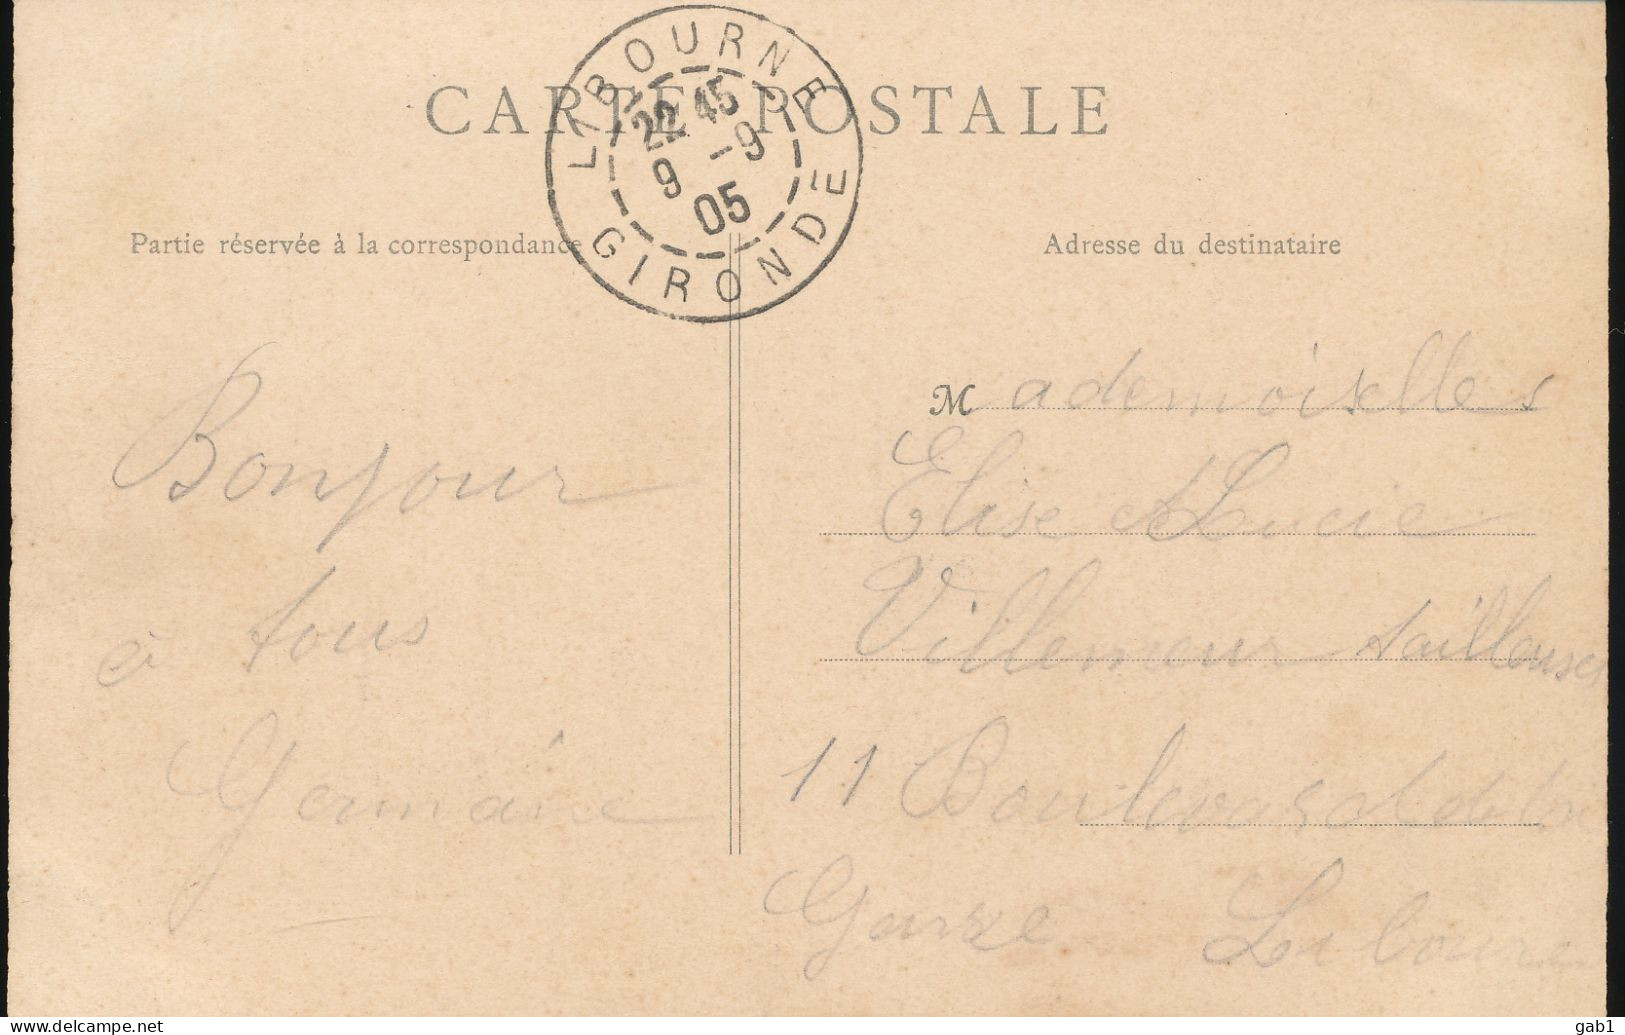 CARTE POSTALE
LIBOURNE
22 45
9 -9
05
GIRONDE
Partie réservée à la correspondance
Adresse du destinataire
Bonjour
à tous
Germaine
Mademoiselles
Elise et Lucie
Villemeur tailleuses
11 Boulevard de
Libourne
delcampe.net
gab1